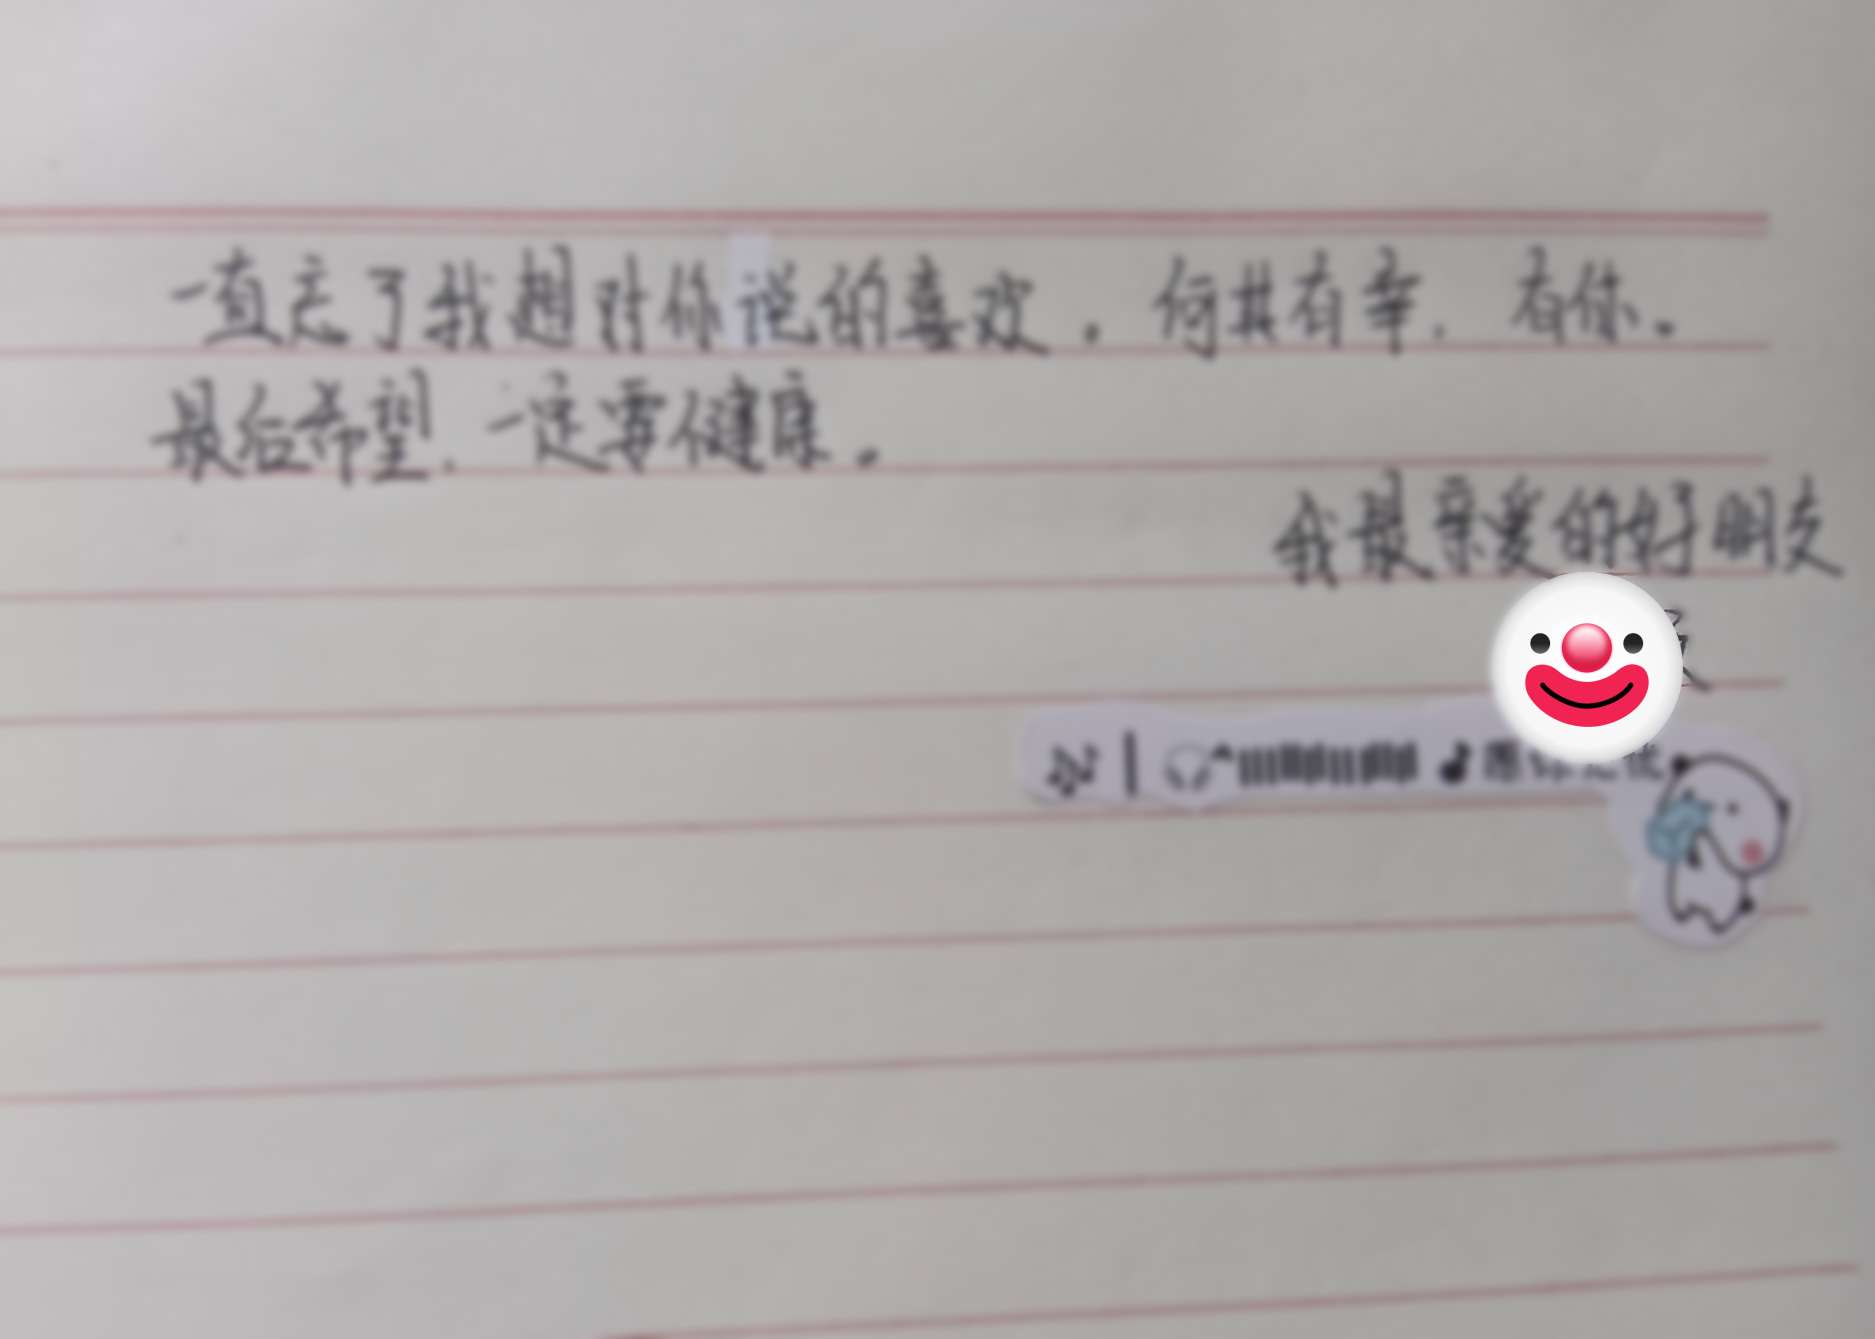 一直忘了我想对你说的喜欢。何其有幸.有你。
最后希望.一定要健康。
我最亲爱的好朋友
愿你